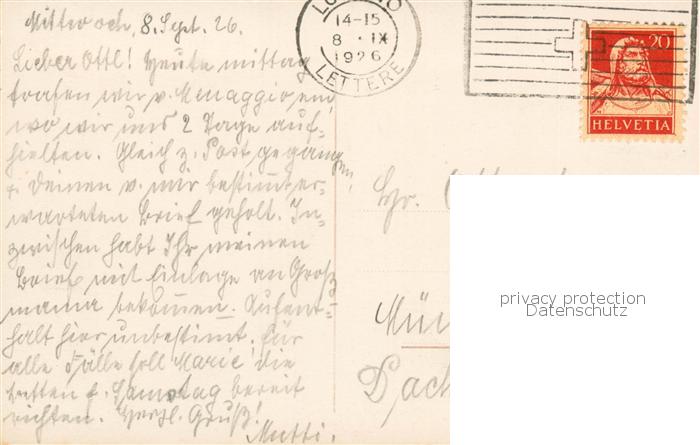 Mittwoch, 8. Sept. 26.
Lieber Ottl! Heute mittag
trafen wir v. Menaggio ein,
wo wir uns 2 Tage auf-
hielten. Gleich z. Post gegangen,
u. Deinen v. mir bestimmt er-
warteten Brief geholt. In-
zwischen habt Ihr meinen
Brief mit Einlage an Groß
mama bekommen. Aufent-
halt hier unbestimmt. Für
alle Fälle soll Marie die
Betten f. Samstag bereit
richten. Herzl. Gruß!
Mutti.
14-15
8 · IX
1926
LETTERE
20
HELVETIA
Hr.
Mün
Dach
privacy protection
Datenschutz